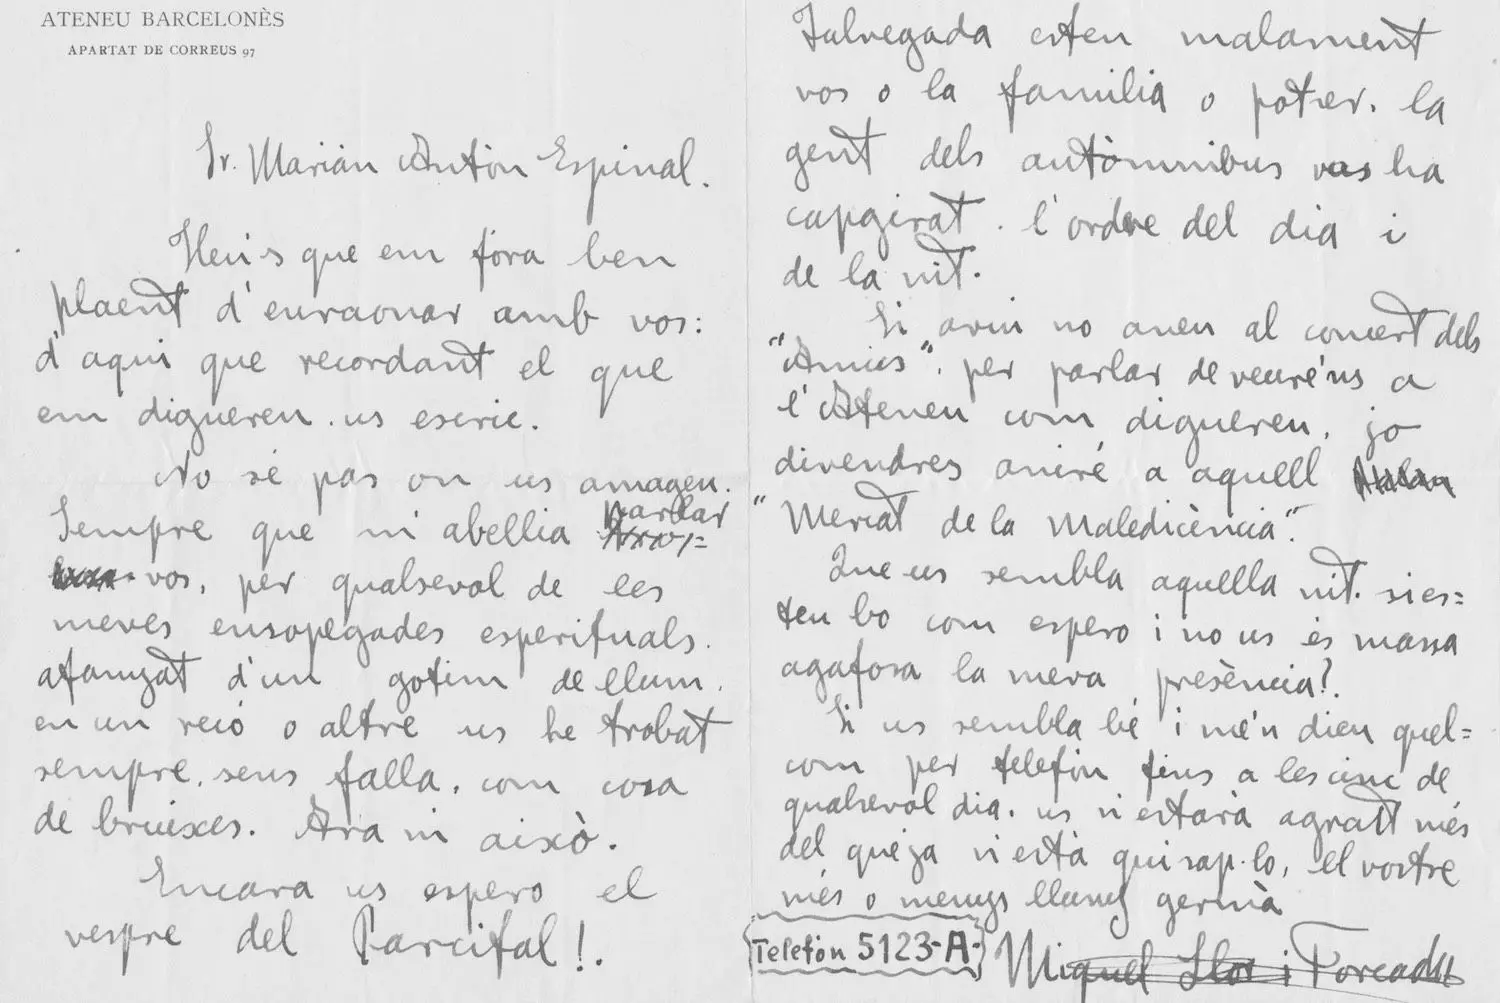 ATENEU BARCELONÈS
APARTAT DE CORREUS 97
Sr. Marián Antón Espinal.
Heu's que em fóra ben
plaent d'enraonar amb vos:
d'aqui que recordant el que
em digueren. us escric.
No sé pas on us amageu.
Sempre que m'abellia parlar
vos, per qualsevol de les
meves ensopegades esperituals.
afanyat d'un gotim de llum.
en un recó o altre us he trobat
sempre, sens falla, com cosa
de bruixes. Ara ni això.
Encara us espero el
vespre del Parcifal!.
Salvegada esteu malament
vos o la familia o potser. la
gent dels autòmnibus vos ha
capgirat. l'ordre del dia i
de la nit.
Si avui no aneu al concert dels
"Amics", per parlar de veure'us a
l'Ateneu com digueren, jo
divendres aniré a aquell
"Mercat de la Maledicència".
Que us sembla aquella nit. si es=
teu bo com espero i no us és massa
agafosa la meva presència?.
Si us sembla bé i me'n dieu quel=
com per telefón fins a les cinc de
qualsevol dia. us n'estarà agraït més
del que ja n'està qui sap-lo, el vostre
més o menys lluny germà
Telefón 5123-A-
Miquel Llor i Forcada